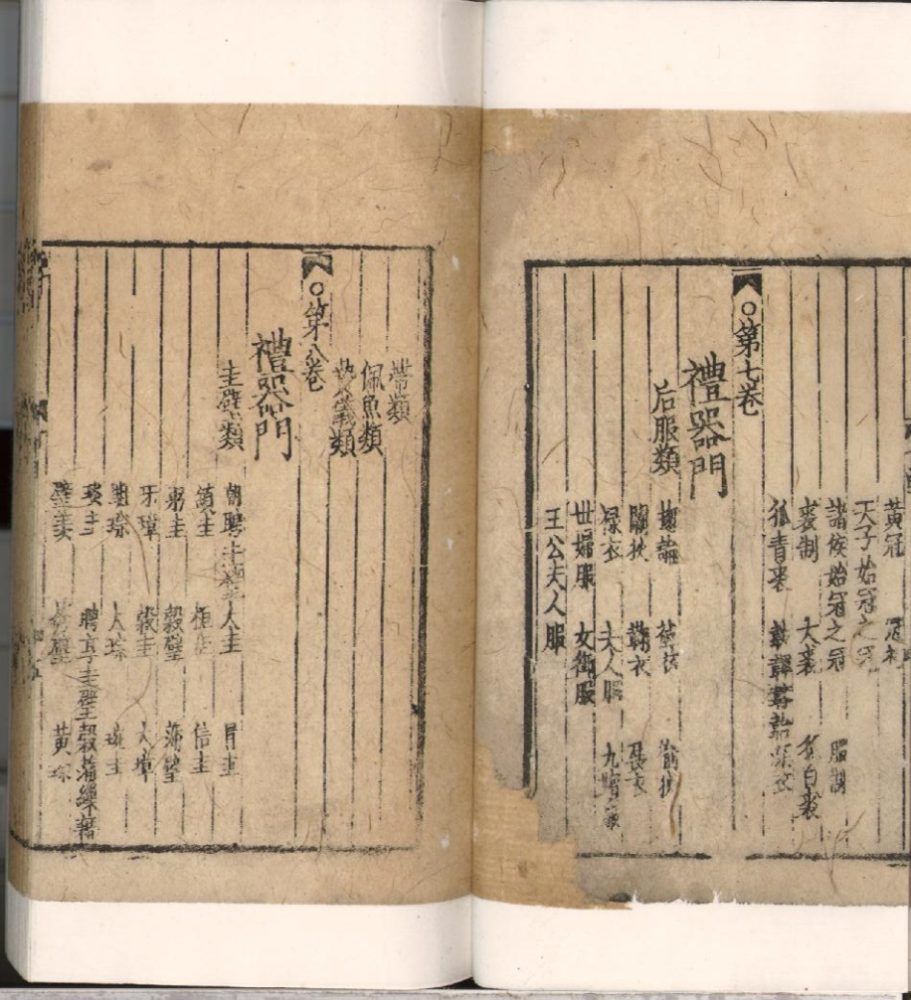 黃冠
天子始冠之冠
諸侯始冠之冠 服制
裘制 大裘 狐白裘
狐青裘
○第七卷
禮器門
后服類
總論
闕狄 鞠衣 展衣
褖衣 夫人服 九嬪
世婦服 女御服
王公夫人服
帶類
佩魚類
贄儀類
○第八卷
禮器門
圭璧類
朝聘 大圭 冒圭
鎮圭 桓圭 信圭
躬圭 穀璧 蒲璧
牙璋 穀圭 大璋
駔琮 大琮 琬圭
琰圭 聘享圭璧 穀蒲繅藉
璧羨 蒼璧 黃琮